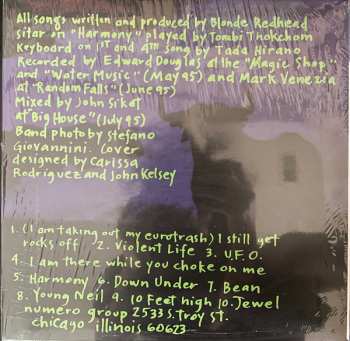 All songs written and produced by Blonde Redhead
sitar on "Harmony" played by Tombi Thokchom
Keyboard on 1st and 4th song by Tada Hirano
Recorded by Edward Douglas at the "Magic Shop"
and "Water Music" (May 95) and Mark Venezia
at "Random Falls" (June 95)
Mixed by John Siket
at Big House" (July 95)
Band photo by Stefano
Giovannini. Cover
designed by Carissa
Rodriguez and John Kelsey
1. (I am taking out my eurotrash) I still get
rocks off 2. Violent Life 3. U.F.O.
4. I am there while you choke on me
5. Harmony 6. Down Under 7. Bean
8. Young Neil 9. 10 Feet high 10. Jewel
numero group 2533 S. Troy St.
chicago illinois 60623